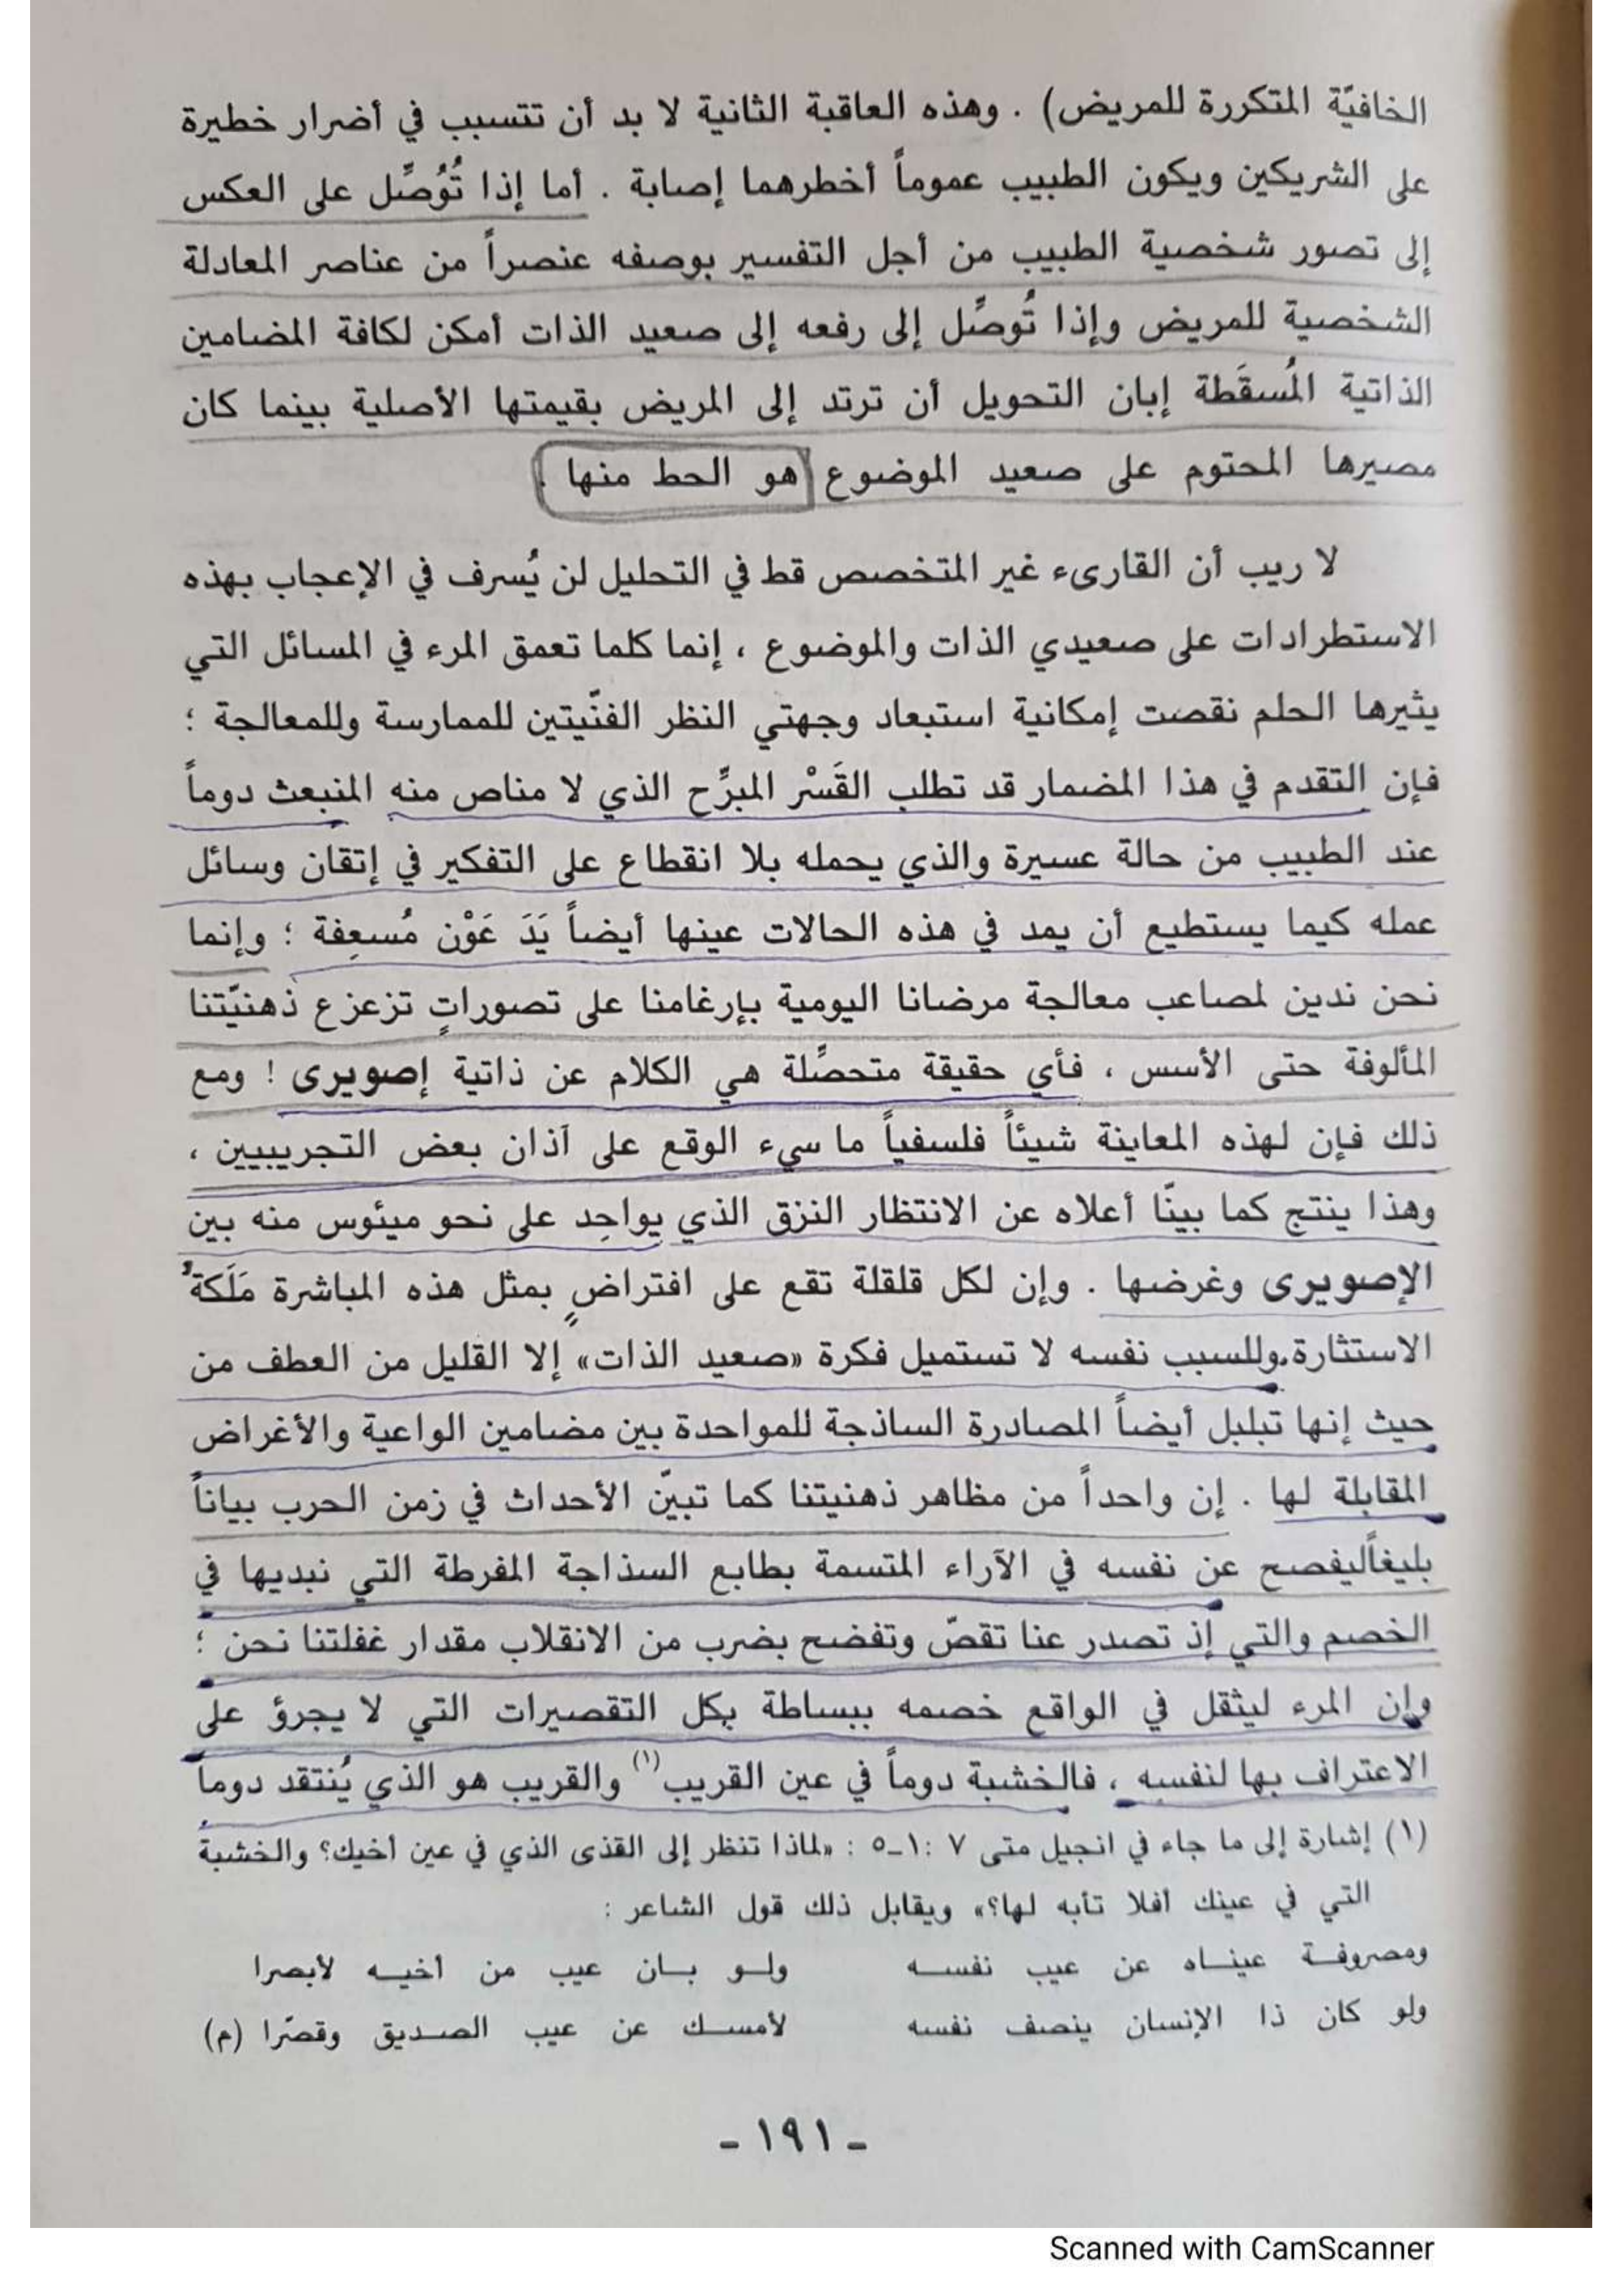 الخافيّة المتكررة للمريض) . وهذه العاقبة الثانية لا بد أن تتسبب في أضرار خطيرة
على الشريكين ويكون الطبيب عموماً أخطرهما إصابة . أما إذا تُوُصِّل على العكس
إلى تصور شخصية الطبيب من أجل التفسير بوصفه عنصراً من عناصر المعادلة
الشخصية للمريض وإذا تُوصِّل إلى رفعه إلى صعيد الذات أمكن لكافة المضامين
الذاتية المُسقَطة إبان التحويل أن ترتد إلى المريض بقيمتها الأصلية بينما كان
مصيرها المحتوم على صعيد الموضوع هو الحط منها .
لا ريب أن القارىء غير المتخصص قط في التحليل لن يُسرف في الإعجاب بهذه
الاستطرادات على صعيدي الذات والموضوع ، إنما كلما تعمق المرء في المسائل التي
يثيرها الحلم نقصت إمكانية استبعاد وجهتي النظر الفنّيتين للممارسة وللمعالجة ؛
فإن التقدم في هذا المضمار قد تطلب القَسْر المبرِّح الذي لا مناص منه المنبعث دوماً
عند الطبيب من حالة عسيرة والذي يحمله بلا انقطاع على التفكير في إتقان وسائل
عمله كيما يستطيع أن يمد في هذه الحالات عينها أيضاً يَدَ عَوْن مُسعِفة ؛ وإنما
نحن ندين لمصاعب معالجة مرضانا اليومية بإرغامنا على تصوراتٍ تزعزع ذهنيّتنا
المألوفة حتى الأسس ، فأي حقيقة متحصِّلة هي الكلام عن ذاتية إصويرى ! ومع
ذلك فإن لهذه المعاينة شيئاً فلسفياً ما سيء الوقع على آذان بعض التجريبيين ،
وهذا ينتج كما بينّا أعلاه عن الانتظار النزق الذي يواحِد على نحو ميئوس منه بين
الإصويرى وغرضها . وإن لكل قلقلة تقع على افتراضٍ بمثل هذه المباشرة مَلَكة
الاستثارة.وللسبب نفسه لا تستميل فكرة «صعيد الذات» إلا القليل من العطف من
حيث إنها تبلبل أيضاً المصادرة الساذجة للمواحدة بين مضامين الواعية والأغراض
المقابلة لها . إن واحداً من مظاهر ذهنيتنا كما تبيّن الأحداث في زمن الحرب بياناً
بليغاًليفصح عن نفسه في الآراء المتسمة بطابع السذاجة المفرطة التي نبديها في
الخصم والتي إذ تصدر عنا تقصّ وتفضح بضرب من الانقلاب مقدار غفلتنا نحن ؛
وإن المرء ليثقل في الواقع خصمه ببساطة بكل التقصيرات التي لا يجرؤ على
الاعتراف بها لنفسه ، فالخشبة دوماً في عين القريب(١) والقريب هو الذي يُنتقد دوماً
(١) إشارة إلى ما جاء في انجيل متى ٧ :١_٥ : «لماذا تنظر إلى القذى الذي في عين أخيك؟ والخشبة
التي في عينك أفلا تأبه لها؟» ويقابل ذلك قول الشاعر :
ومصروفة عيناه عن عيب نفسه ولو بان عيب من أخيه لأبصرا
ولو كان ذا الإنسان ينصف نفسه لأمسك عن عيب الصديق وقصّرا (م)
- ١٩١ -
Scanned with CamScanner